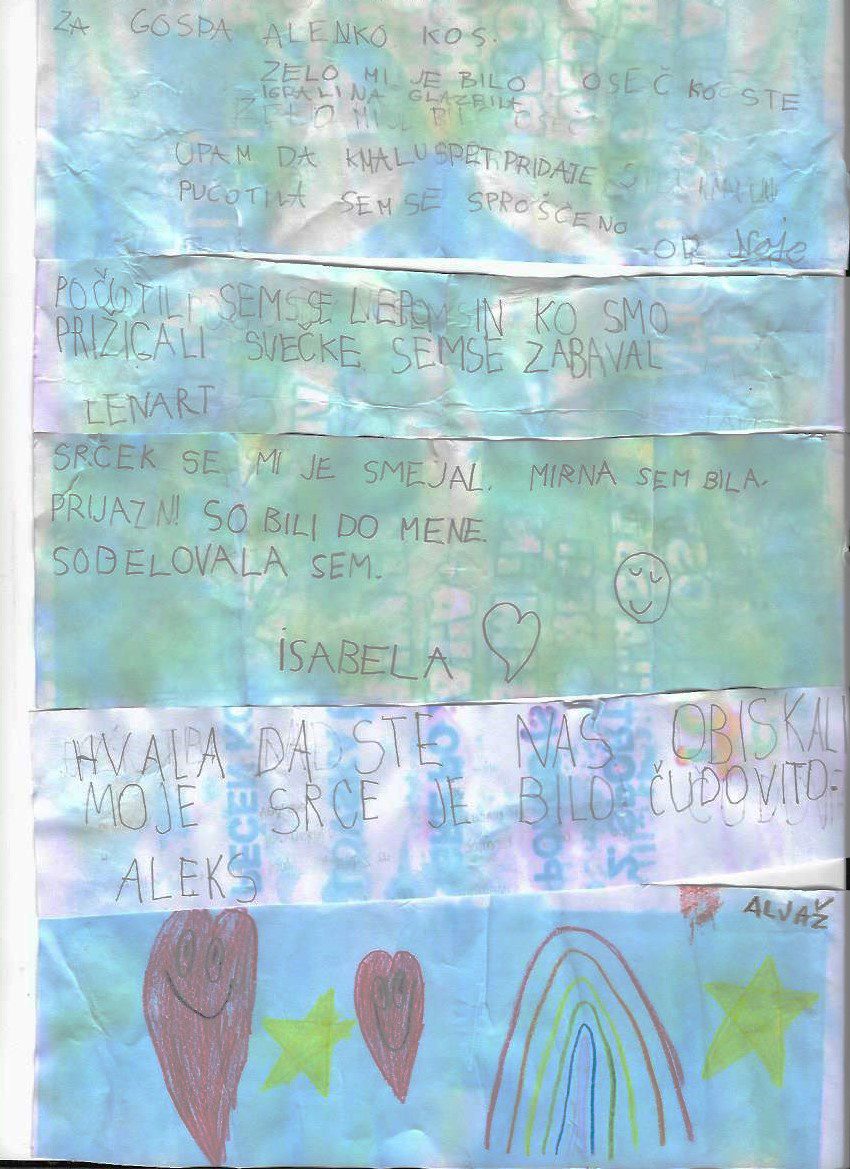 ZA GOSPA ALENKO KOS.
ZELO MI JE BILO OSEČ KO STE
IGRALI NA GLAZBILA
ZELO MI JE BIL OSEČ
UPAM DA KMALU SPET PRIDAJE
PUČOTILA SEM SE SPROŠČENO
OD Neje
POČUTIL SEM SE LIEPO IN KO SMO
PRIŽIGALI SVEČKE SEMSE ZABAVAL
LENART
SRČEK SE MI JE SMEJAL. MIRNA SEM BILA.
PRIJAZNI SO BILI DO MENE.
SODELOVALA SEM.
ISABELA
HVALA DA STE NAS OBISKALI
MOJE SRCE JE BILO ČUDOVITO.
ALEKS
ALJAŽ